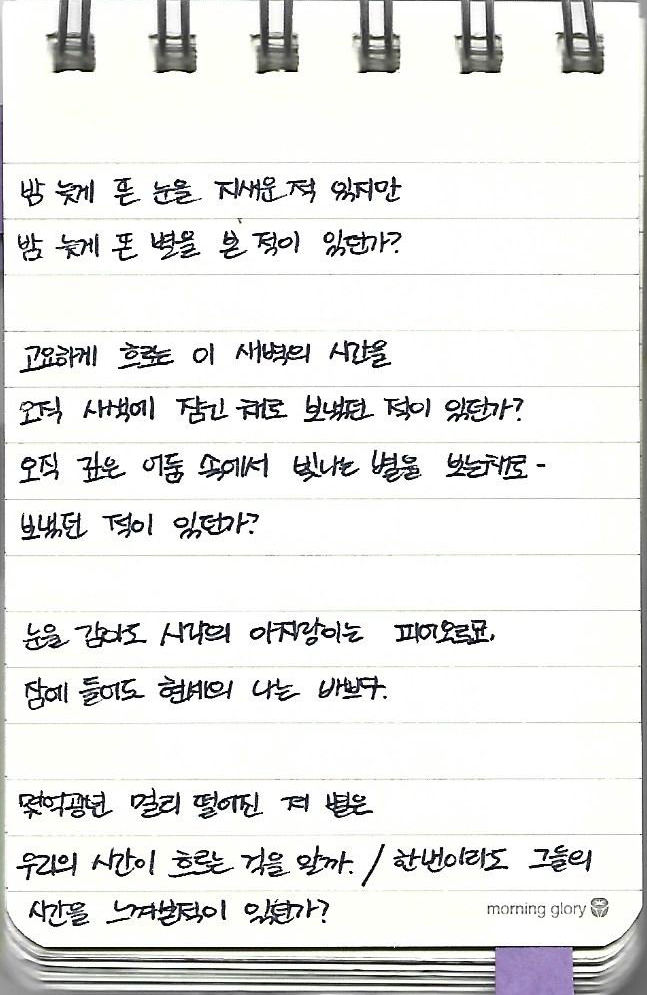 밤 늦게 뜬 눈을 지새운 적 있지만
밤 늦게 뜬 별을 본 적이 있던가?
고요하게 흐르는 이 새벽의 시간을
오직 새벽에 잠긴 채로 보냈던 적이 있던가?
오직 깊은 어둠 속에서 빛나는 별을 보는채로 -
보냈던 적이 있던가?
눈을 감아도 시각의 아지랑이는 피어오르고,
잠에 들어도 현세의 나는 바쁘다.
몇억광년 멀리 떨어진 저 별은
우리의 시간이 흐르는 걸을 알까. / 한번이라도 그들의
시간을 느껴본적이 있던가?
morning glory